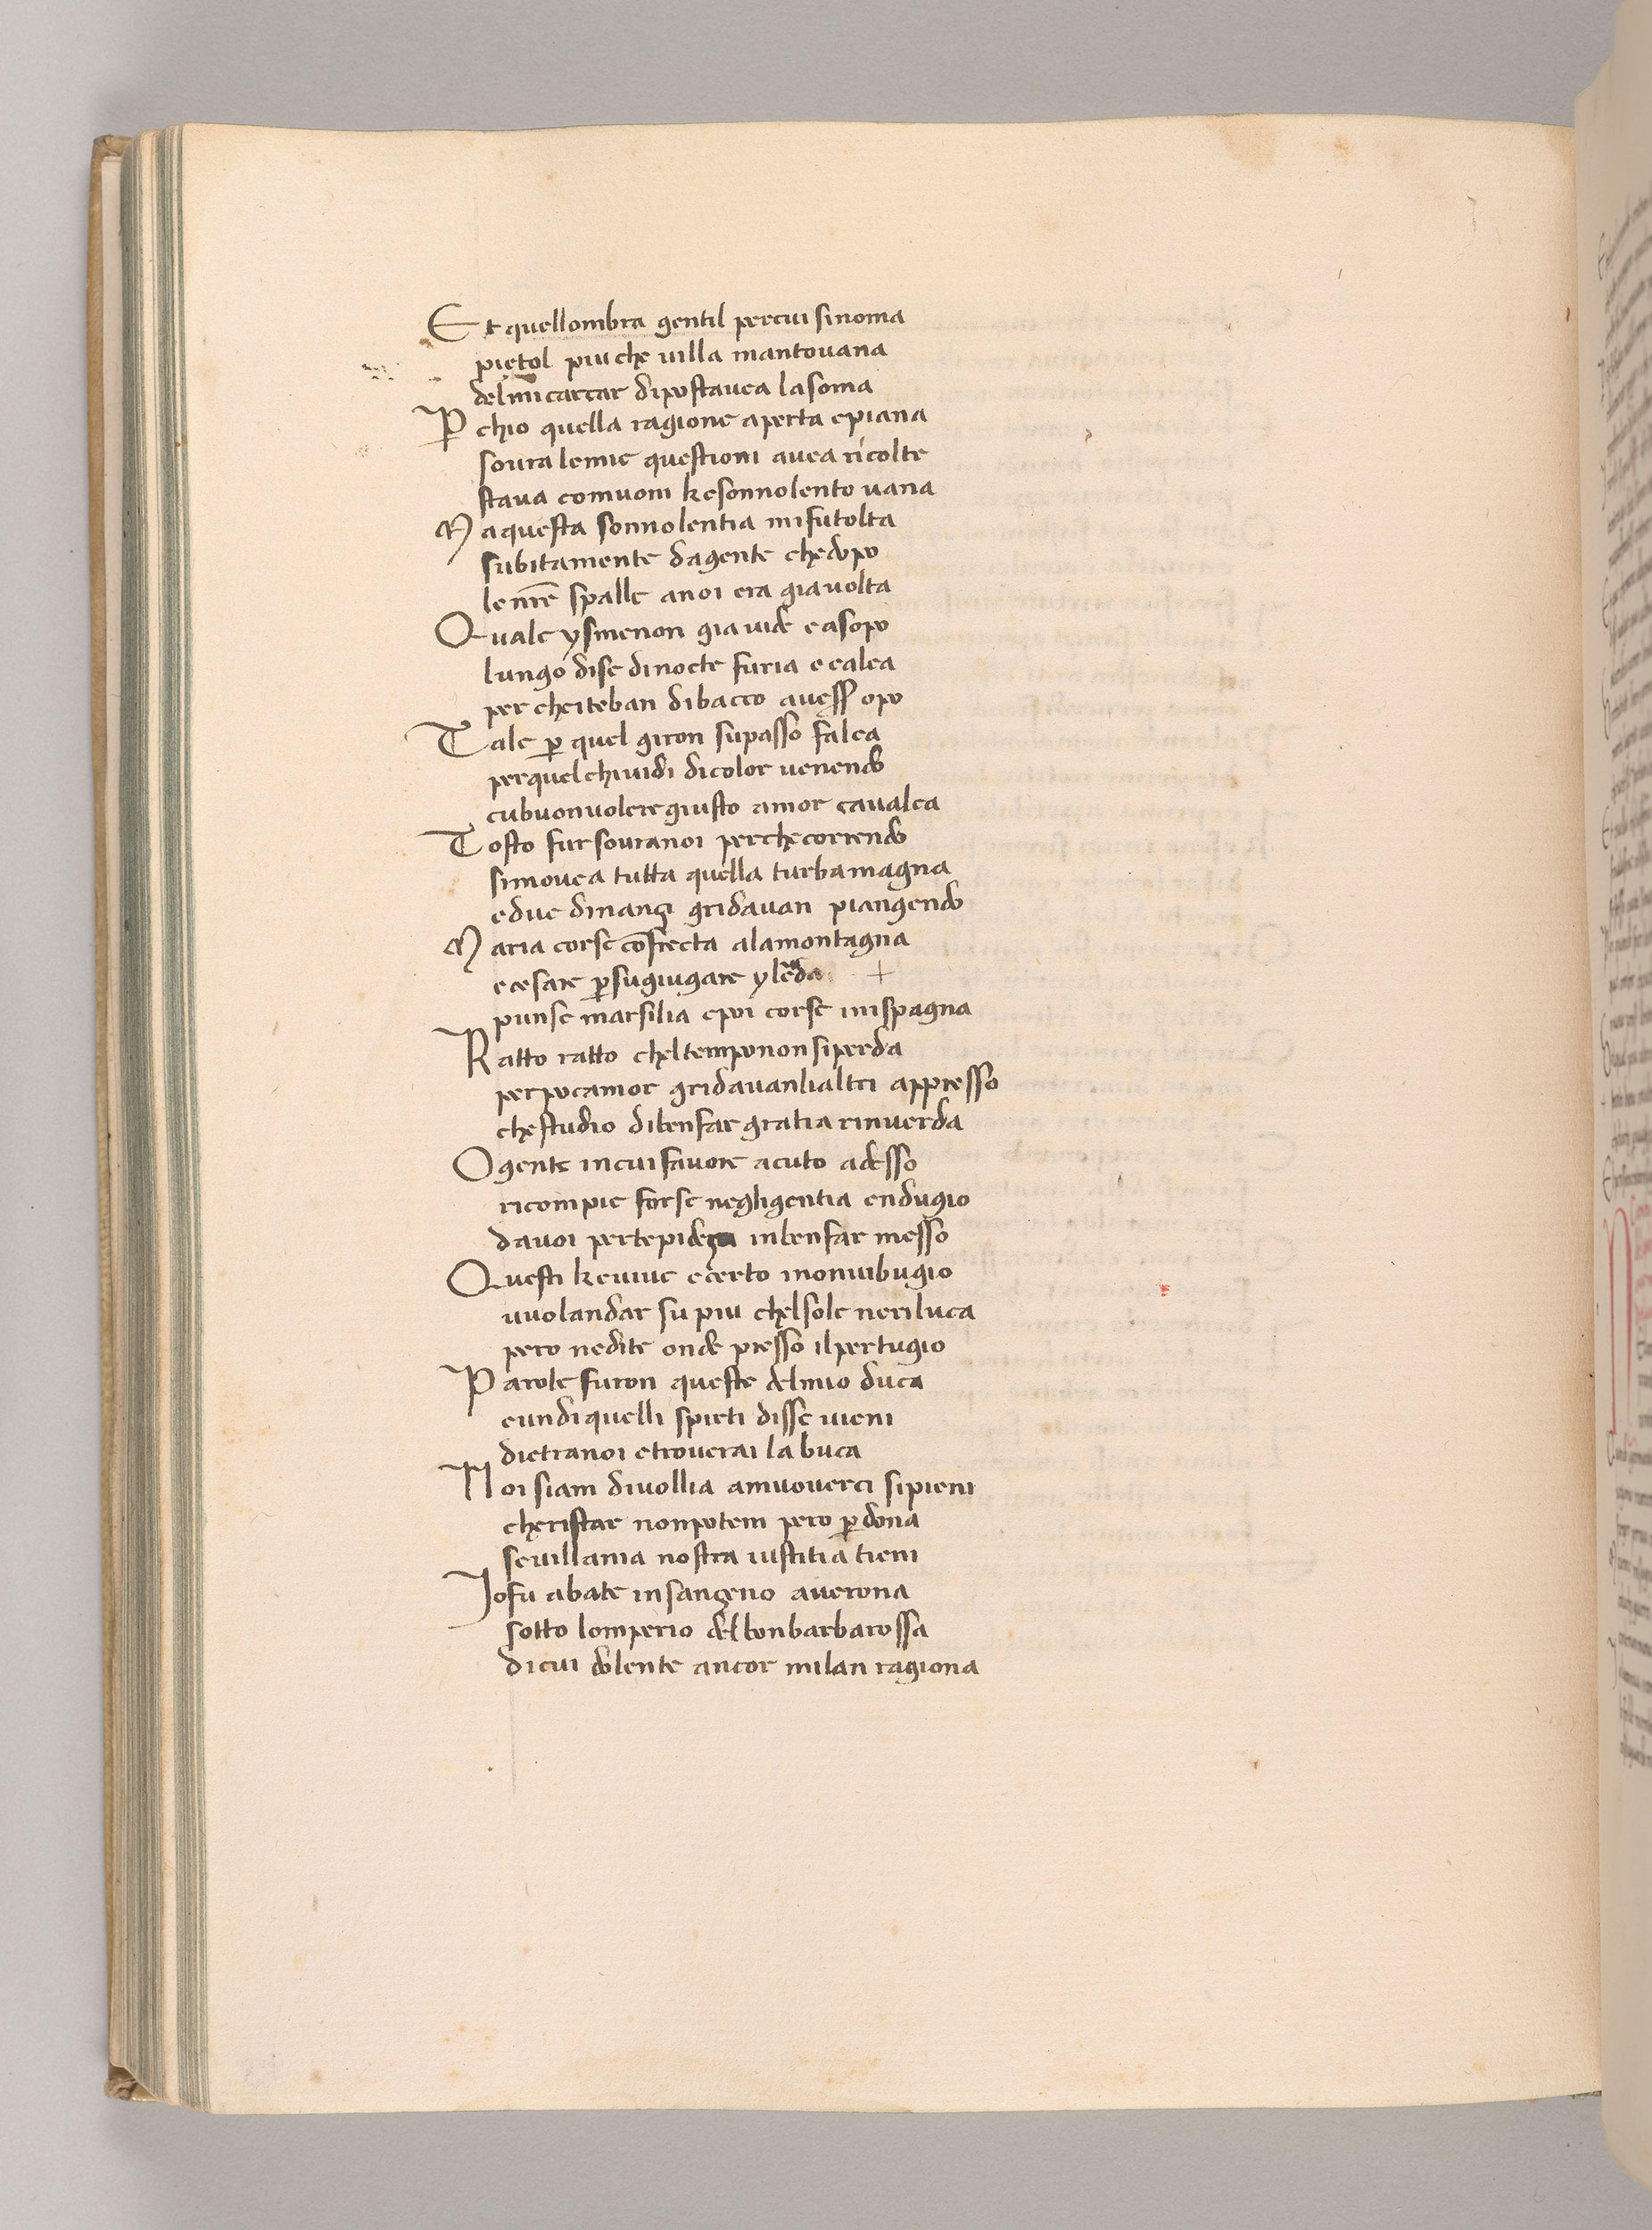 Et quellombra gentil percui sinoma
pietol piu che uilla mantouana
delmi carcar dipostauea lasoma
P chio quella ragione aperta epiana
soura lemie questioni auea ricolte
staua comuom kesonnolento uana
Ma questa sonnolentia mifutolta
subitamente dagente chedopo
le nr̄e spalle anoi era giauolta
Quale ysmenon gia uide easopo
lungo dise dinocte furia ecalca
per cheiteban dibacco auess opo
Tale p̱ quel giron supasso falca
perquelchiuidi dicolor uenendo
cubuonuolere giusto amor caualca
Tosto fur souranoi perchecorrendo
simouea tutta quella turbamagna
edue dinanzi gridauan piangendo
Maria corse cōfrecta alamontagna
ecesare p̱sugiugare ylēda +
punse marsilia epoi corse inispagna
Ratto ratto cheltemponon siperda
perpocamor gridauanlialtri appresso
chestudio dibenfar gratia rinuerda
O gente incui fauore acuto adesso
ricompie forse negligentia endugio
dauoi pertepideza inbenfar messo
Questi keuiue ecerto inonuibugio
uuolandar su piu chelsole neriluca
pero nedite onde presso ilpertugio
Parole furon queste delmio duca
eundiquelli spirti disse uieni
dietranoi etrouerai la buca
Noi siam diuollia amuouerci sipieni
cheristar nonpotem pero p̱dona
seuillania nostra iustitia tieni
Iofu abate insanzeno auerona
sotto lomperio delbonbarbarossa
dicui dolente ancor milan ragiona